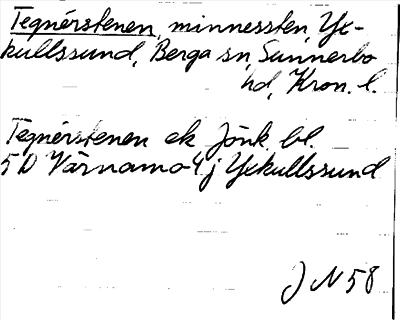 Tegnérstenen, minnessten, Yx-
kullssund, Berga sn, Sunnerbo
hd, Kron. l.
Tegnérstenen ek Jönk bl.
5 D Värnamo 4 j Yxkullssund
J N 58